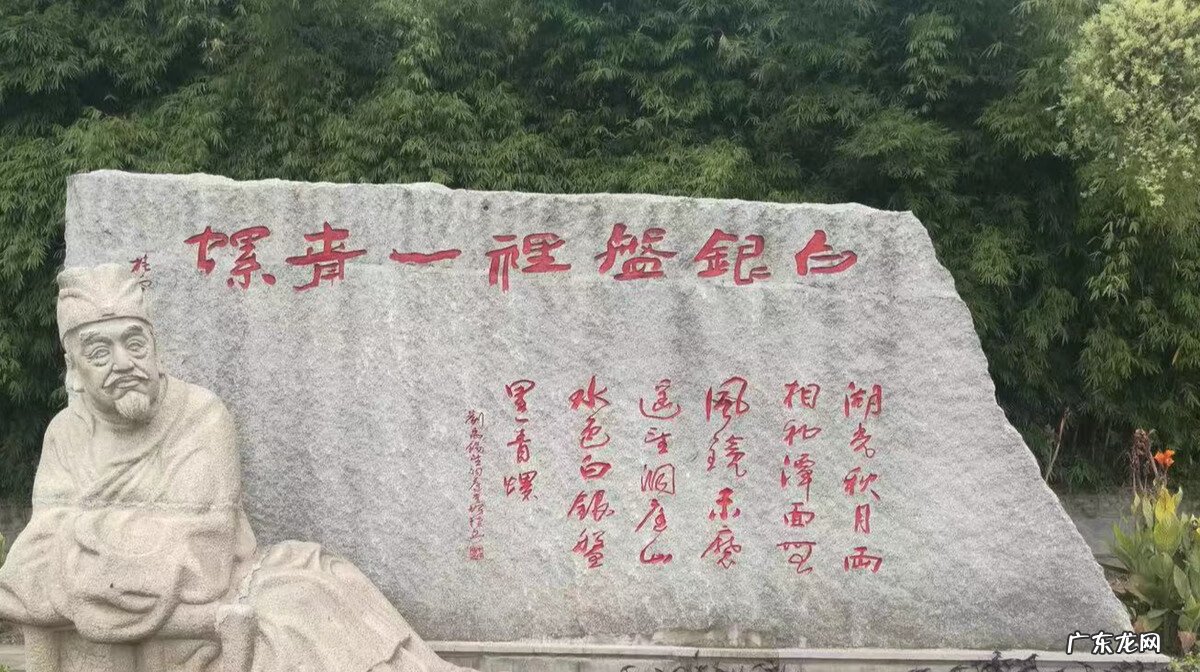 白銀盤裡一青螺
湖光秋月兩
相和潭面無
風鏡未磨
遥望洞庭山
水色白銀盤
里一青螺
广东龙网